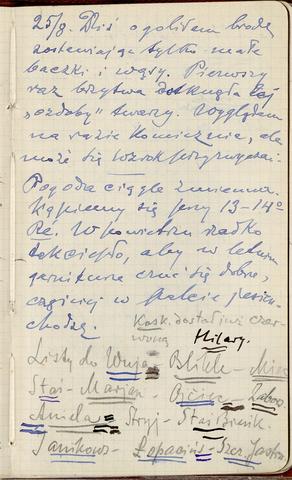 25/8. Dziś ogoliłem brodę
zostawiając tylko małe
baczki i wąsy. Pierwszy
raz brzytwa dotknęła tej
"ozdoby" twarzy. Wyglądam
na razie komicznie, ale
może się wzrok przyzwyczai.
Pogoda ciągle zmienna.
Kąpiemy się przy 13-14°
Ré. W powietrzu rzadko
tak ciepło, aby w letnim
garniturze czuć się dobrze,
częściej w palcie jesien.
chodzę.
Kosk. dostał już czer-
woną
Hilary.
Listy do Wuja Blikle - Mie
Staś - Marjan - Ojciec - Zabor
Aniela - Stryj - Staś Bronik.
Janikows - Łopacińs - Szcz. Jastrz